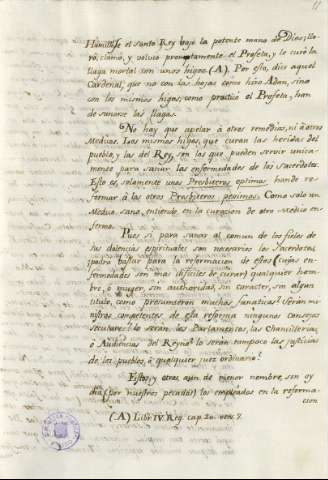 Humillòse el santo Rey bajo la potente mano de Dios; llo-
rò, clamò, y volviò promptamente el Profeta, y le curò la
llaga mortal con unos higos. (A). Por esso, dice aquel
Cardenal, que no con las hojas como hizo Adan, sino
con los mismos higos, como practicò el Profeta, han
de sanarse las llagas.
No hay que apelar à otros remedios, ni à otros
Medicos. Los mismos higos, que curan las heridas del
pueblo, y las del Rey, son los que pueden servir unica-
mente para sanar las enfermedades de los Sacerdotes.
Esto es, solamente unos Presbiteros optimos han de re-
formar à los otros Presbiteros pesimos. Como solo un
Medico sano, entiende en la curacion de otro Medico en-
fermo.
Pues si para sanar al comun de los fieles de
sus dolencias espirituales son necesarios los Sacerdotes,
podrà bastar para la reformacion de estos (cujas en-
fermedades son mas dificiles de curar) qualquier hom-
bre, ò muger, sin authoridad, sin caracter, sin algun
titulo, como presumieron muchos fanaticos? Seràn mi-
nistros competentes de esta reforma ningunos consejos
seculares? lo seràn los Parlamentos, las Chancillerias,
ò Audiencias del Reyno? lo seràn tampoco las justicias
de los pueblos, ò qualquier juez ordinario?
Estos, y otros aùn de menor nombre son oy
dia (por nuestros pecados) los empleados en la reforma-
cion
(A) Libr. IV. Reg. cap. 20. vers. 7.